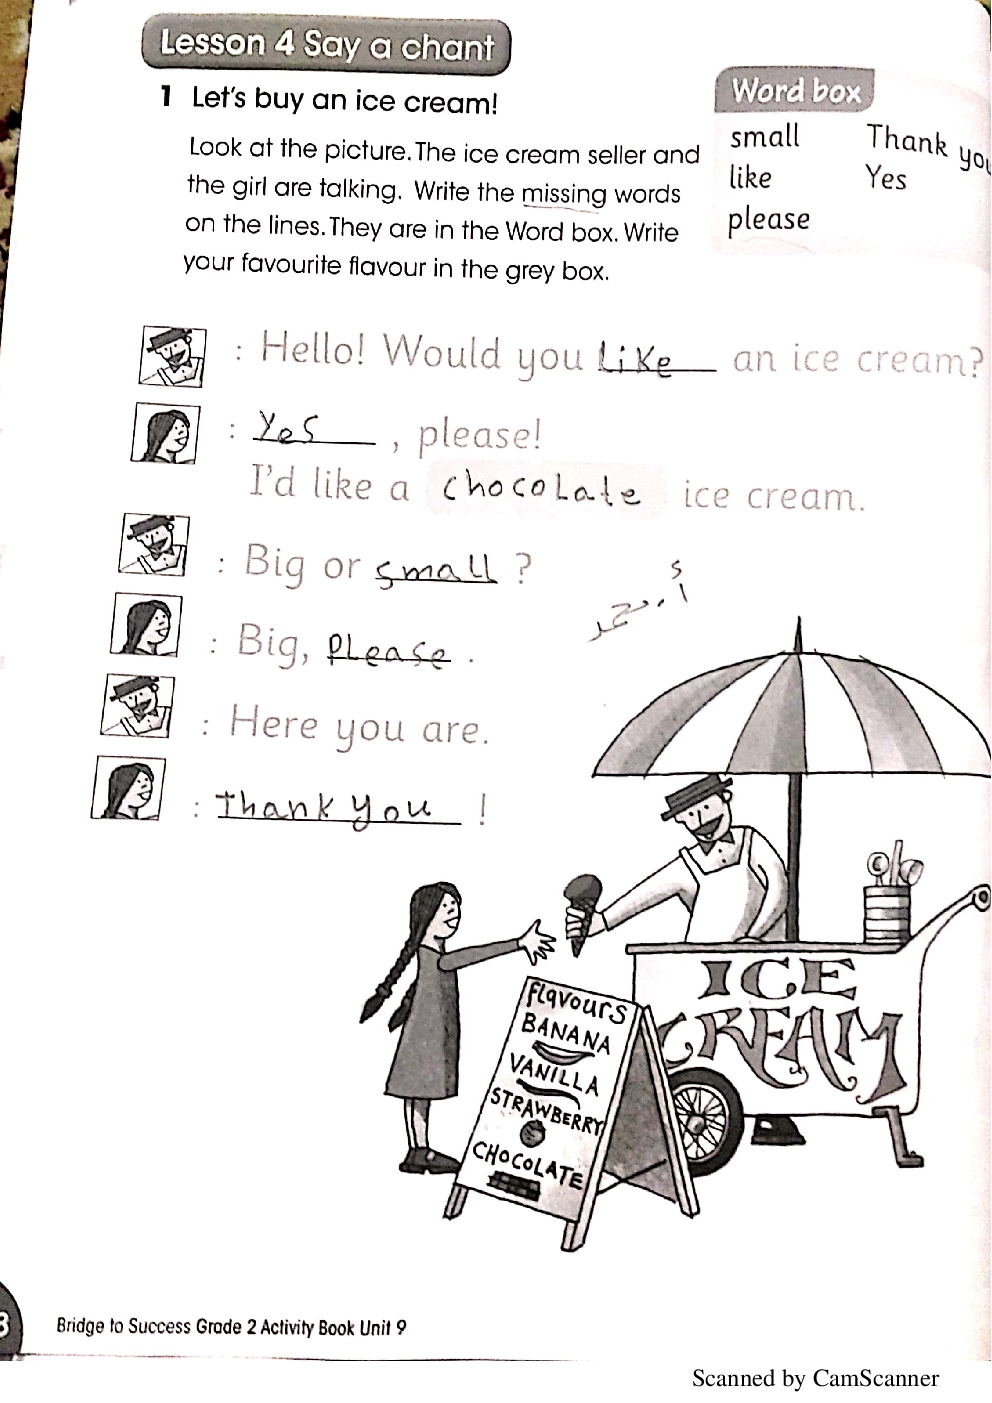 Lesson 4 Say a chant
1 Let's buy an ice cream!
Look at the picture. The ice cream seller and
the girl are talking. Write the missing words
on the lines. They are in the Word box. Write
your favourite flavour in the grey box.
Word box
small Thank you
like Yes
please
: Hello! Would you like an ice cream?
: Yes, please!
I'd like a chocolate ice cream.
: Big or small?
: Big, please.
: Here you are.
: Thank you!
ICE
CREAM
flavours
BANANA
VANILLA
STRAWBERRY
CHOCOLATE
3
Bridge to Success Grade 2 Activity Book Unit 9
Scanned by CamScanner